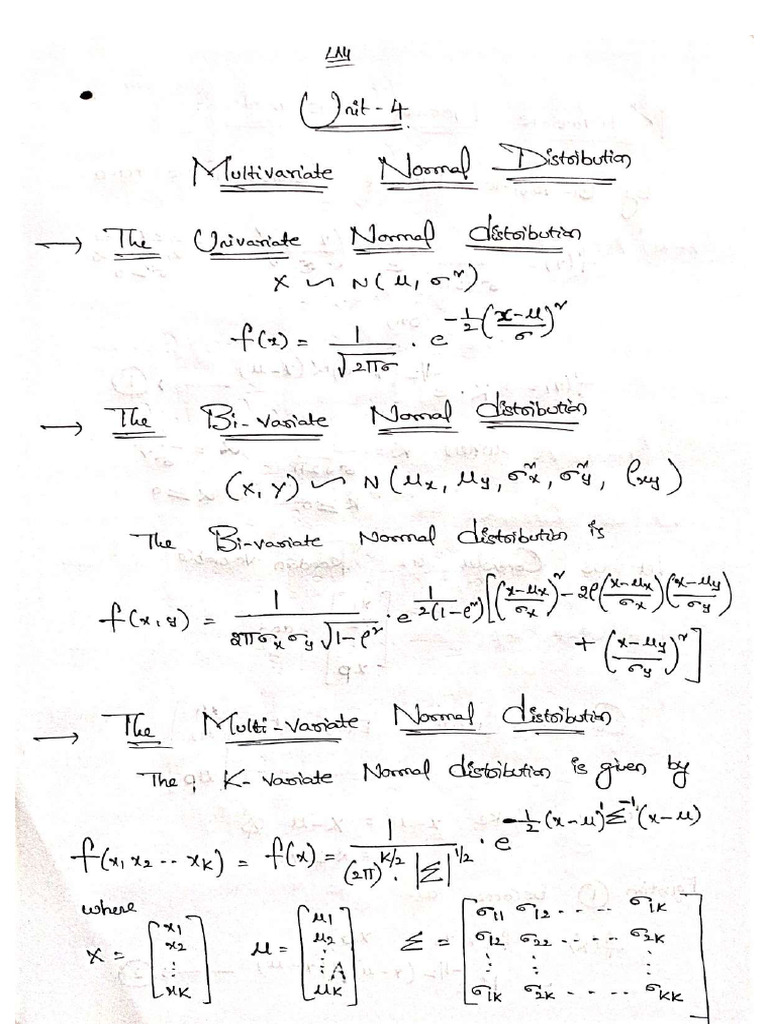 Unit - 4.
Multivariate Normal Distribution
→ The Univariate Normal distribution
X ∽ N(μ, σ²)
f(x) = 1/√(2πσ) · e^(-1/2 ((x-μ)/σ)²)
→ The Bi-variate Normal distribution
(X, Y) ∽ N(μx, μy, σx², σy², ρxy)
The Bi-variate Normal distribution is
f(x,y) = 1/(2πσxσy√(1-ρ²)) · e^(1/(2(1-ρ²)) [((x-μx)/σx)² - 2ρ((x-μx)/σx)((x-μy)/σy)
+ ((x-μy)/σy)²]
→ The Multi-variate Normal distribution
The K-variate Normal distribution is given by
f(x1 x2 -- xK) = f(x) = 1/((2π)^(K/2) · |Σ|^(1/2)) · e^(-1/2 (x-μ)' Σ^-1 (x-μ))
where
X = [x1 x2 ⋮ xK] μ = [μ1 μ2 ⋮ μK] Σ = [σ11 σ12 ---- σ1K
σ12 σ22 ---- σ2K
⋮ ⋮ ⋮
σ1K σ2K ---- σKK]